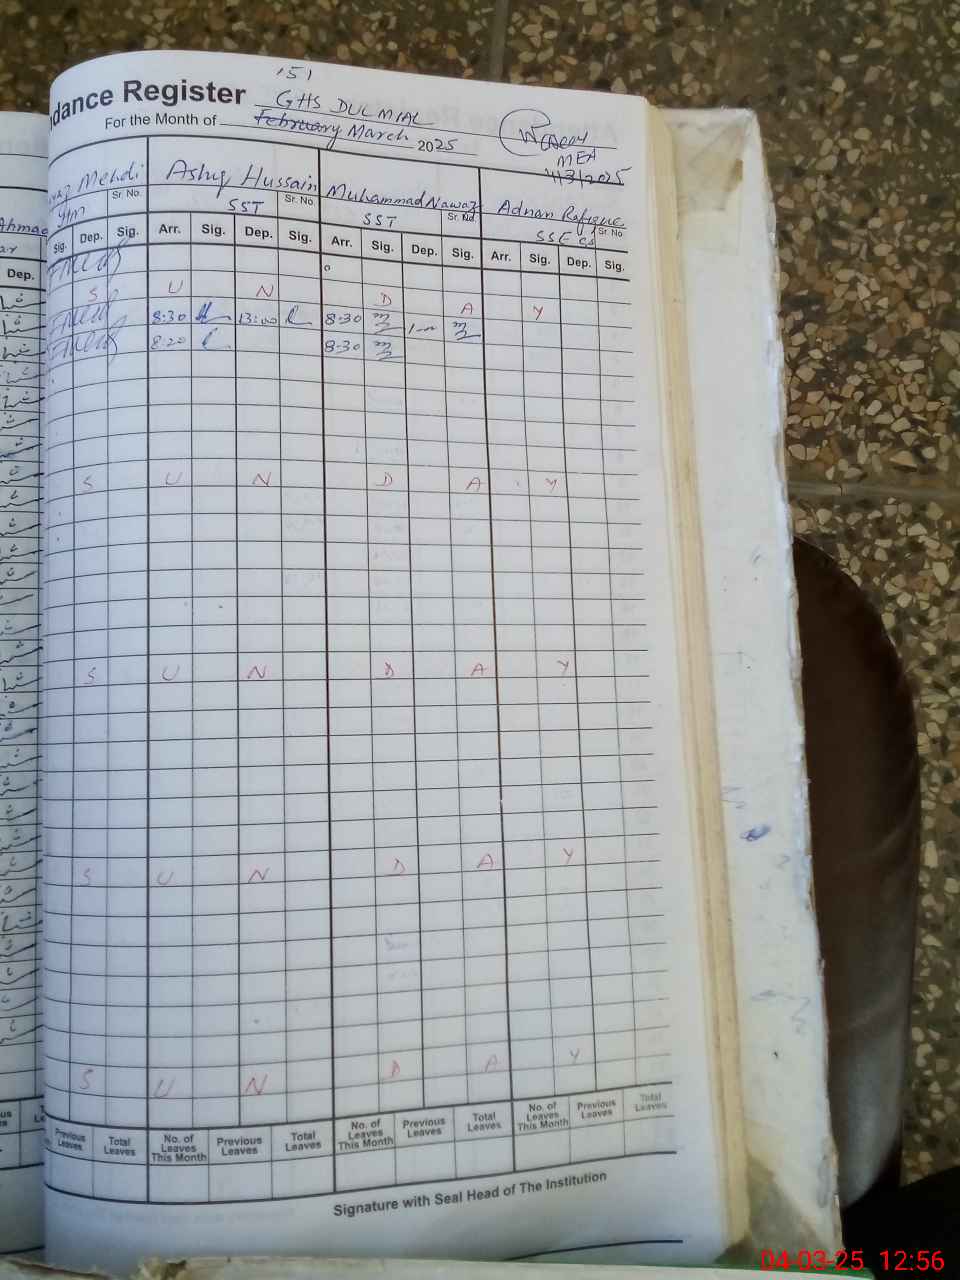 151
dance Register GHS DULMIAL
For the Month of February March 2025
MEA
11/3/2025
Mehdi Ashiq Hussain Muhammad Nawaz Adnan Rafique
Sr. No. SST Sr. No. SST Sr. No. SSE Sr. No.
Ahmad
Sig. Dep. Sig. Arr. Sig. Dep. Sig. Arr. Sig. Dep. Sig. Arr. Sig. Dep. Sig.
Dep.
S U N D A Y
8:30 13:00 8-30
8:20 8-30
S U N D A Y
S U N D A Y
S U N D A Y
S U N D A Y
Previous Leaves Total Leaves No. of Leaves This Month Previous Leaves Total Leaves No. of Leaves This Month Previous Leaves Total Leaves No. of Leaves This Month Previous Leaves Total Leaves
Signature with Seal Head of The Institution
04-03-25 12:56